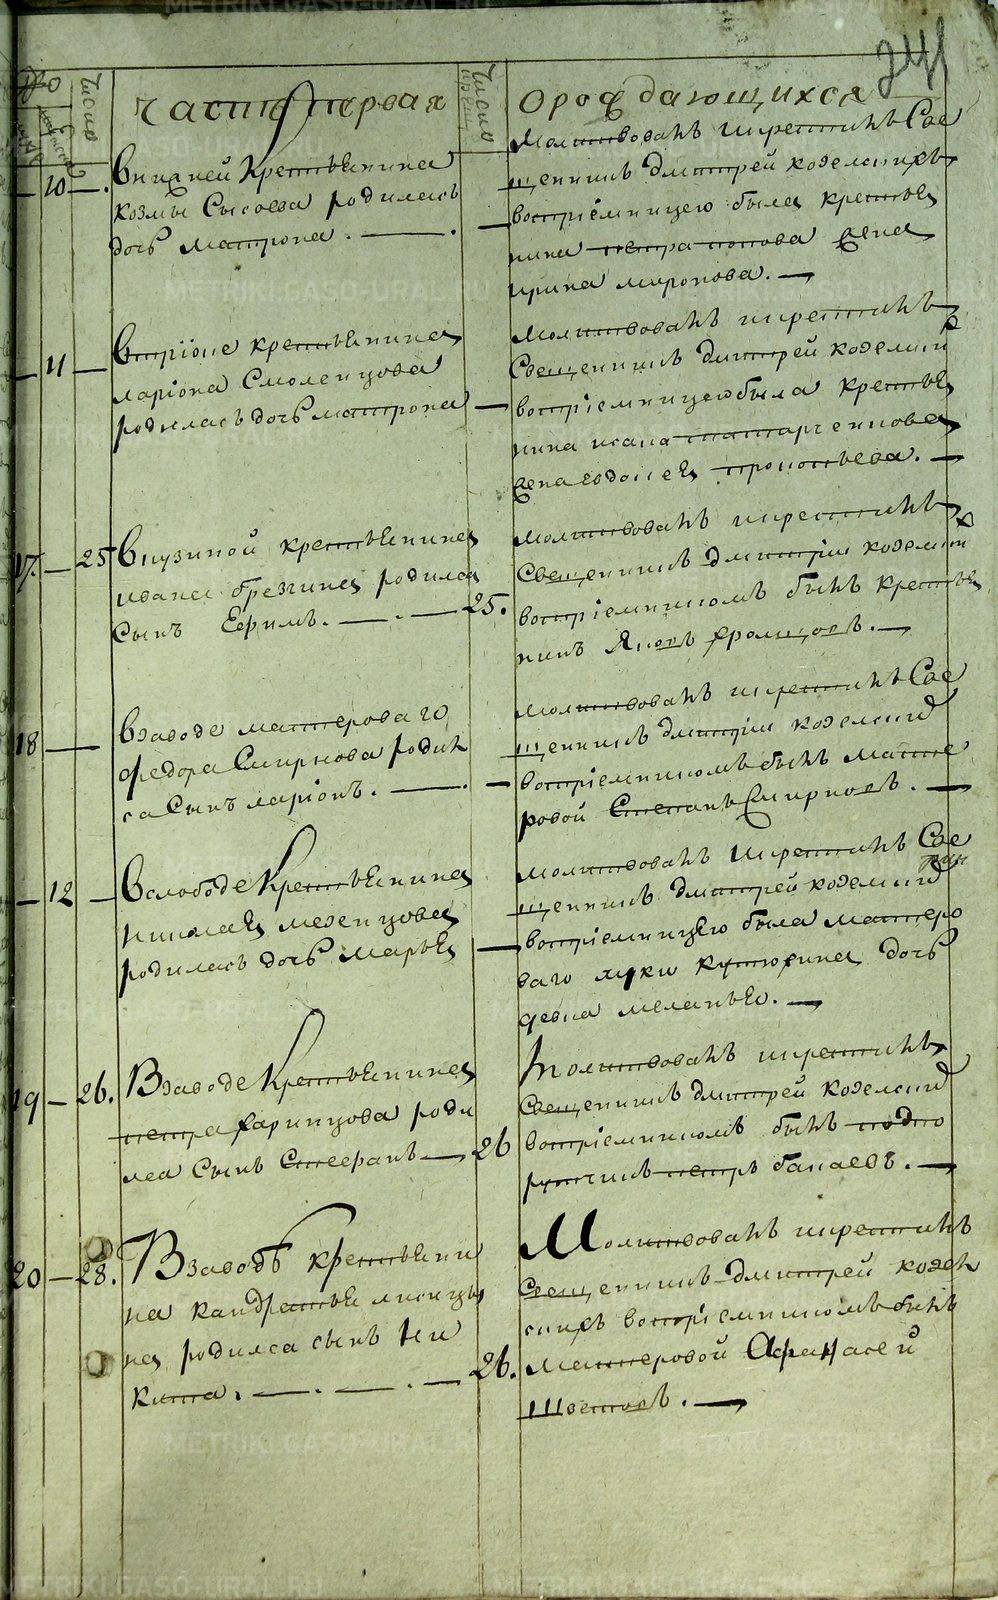 241
Часть первая
О рождающихся
Число
10
Внижней крестьянина
козмы Сысоева родилась
дочь матрона.
молитвовалъ икрестилъ Свя
щенникъ дмитрей козелскихъ
восприемницею была крестья
нина петра попова жена
ирина миронова.
11
ларiона Смоленцова
родилась дочь матрона
молитвовалъ икрестилъ
Священникъ дмитрей козелски
воспрiемницею была крестья
нина исака татарченкова
жена евдокея прокопьева.
17. 25
крестьянина
ивана брезгина родился
Сынъ Ефимъ.
25.
молитвовалъ икрестилъ
Священникъ дмитрiй козелски
воспрiемникомъ былъ крестья
нинъ Яковъ хромцовъ.
18
Взаводе мастероваго
федора Смирнова родил
ся Сынъ ларiонъ.
молитвовалъ икрестилъ Свя
щенникъ дмитрiй козелский
воспрiемникомъ былъ масте
ровой Степанъ Смирновъ.
12
Вслободе крестьянина
николая мезенцова
родилась дочь марья
молитвовалъ икрестилъ Свя
щенникъ дмитрей козелский
воспрiемницею была мастеро
ваго луки кутюхина дочь
девка меланья.
19 26.
Взаводе крестьянина
петра фарипцова роди
лся Сынъ Стефанъ
26
молитвовалъ икрестилъ
Священникъ дмитрей козелский
воспрiемникомъ былъ подпо
ручикъ петръ банаевъ.
20 28.
Взаводъ крестьяни
на кандратья лисицы
на родился сынъ ни
кита.
26.
Молитвовалъ икрестилъ
Священникъ дмитрей козел
скихъ воспрiемникомъ былъ
мастеровой Афанасей
Шветовъ.
METRIKI.GASO-URAL.RU